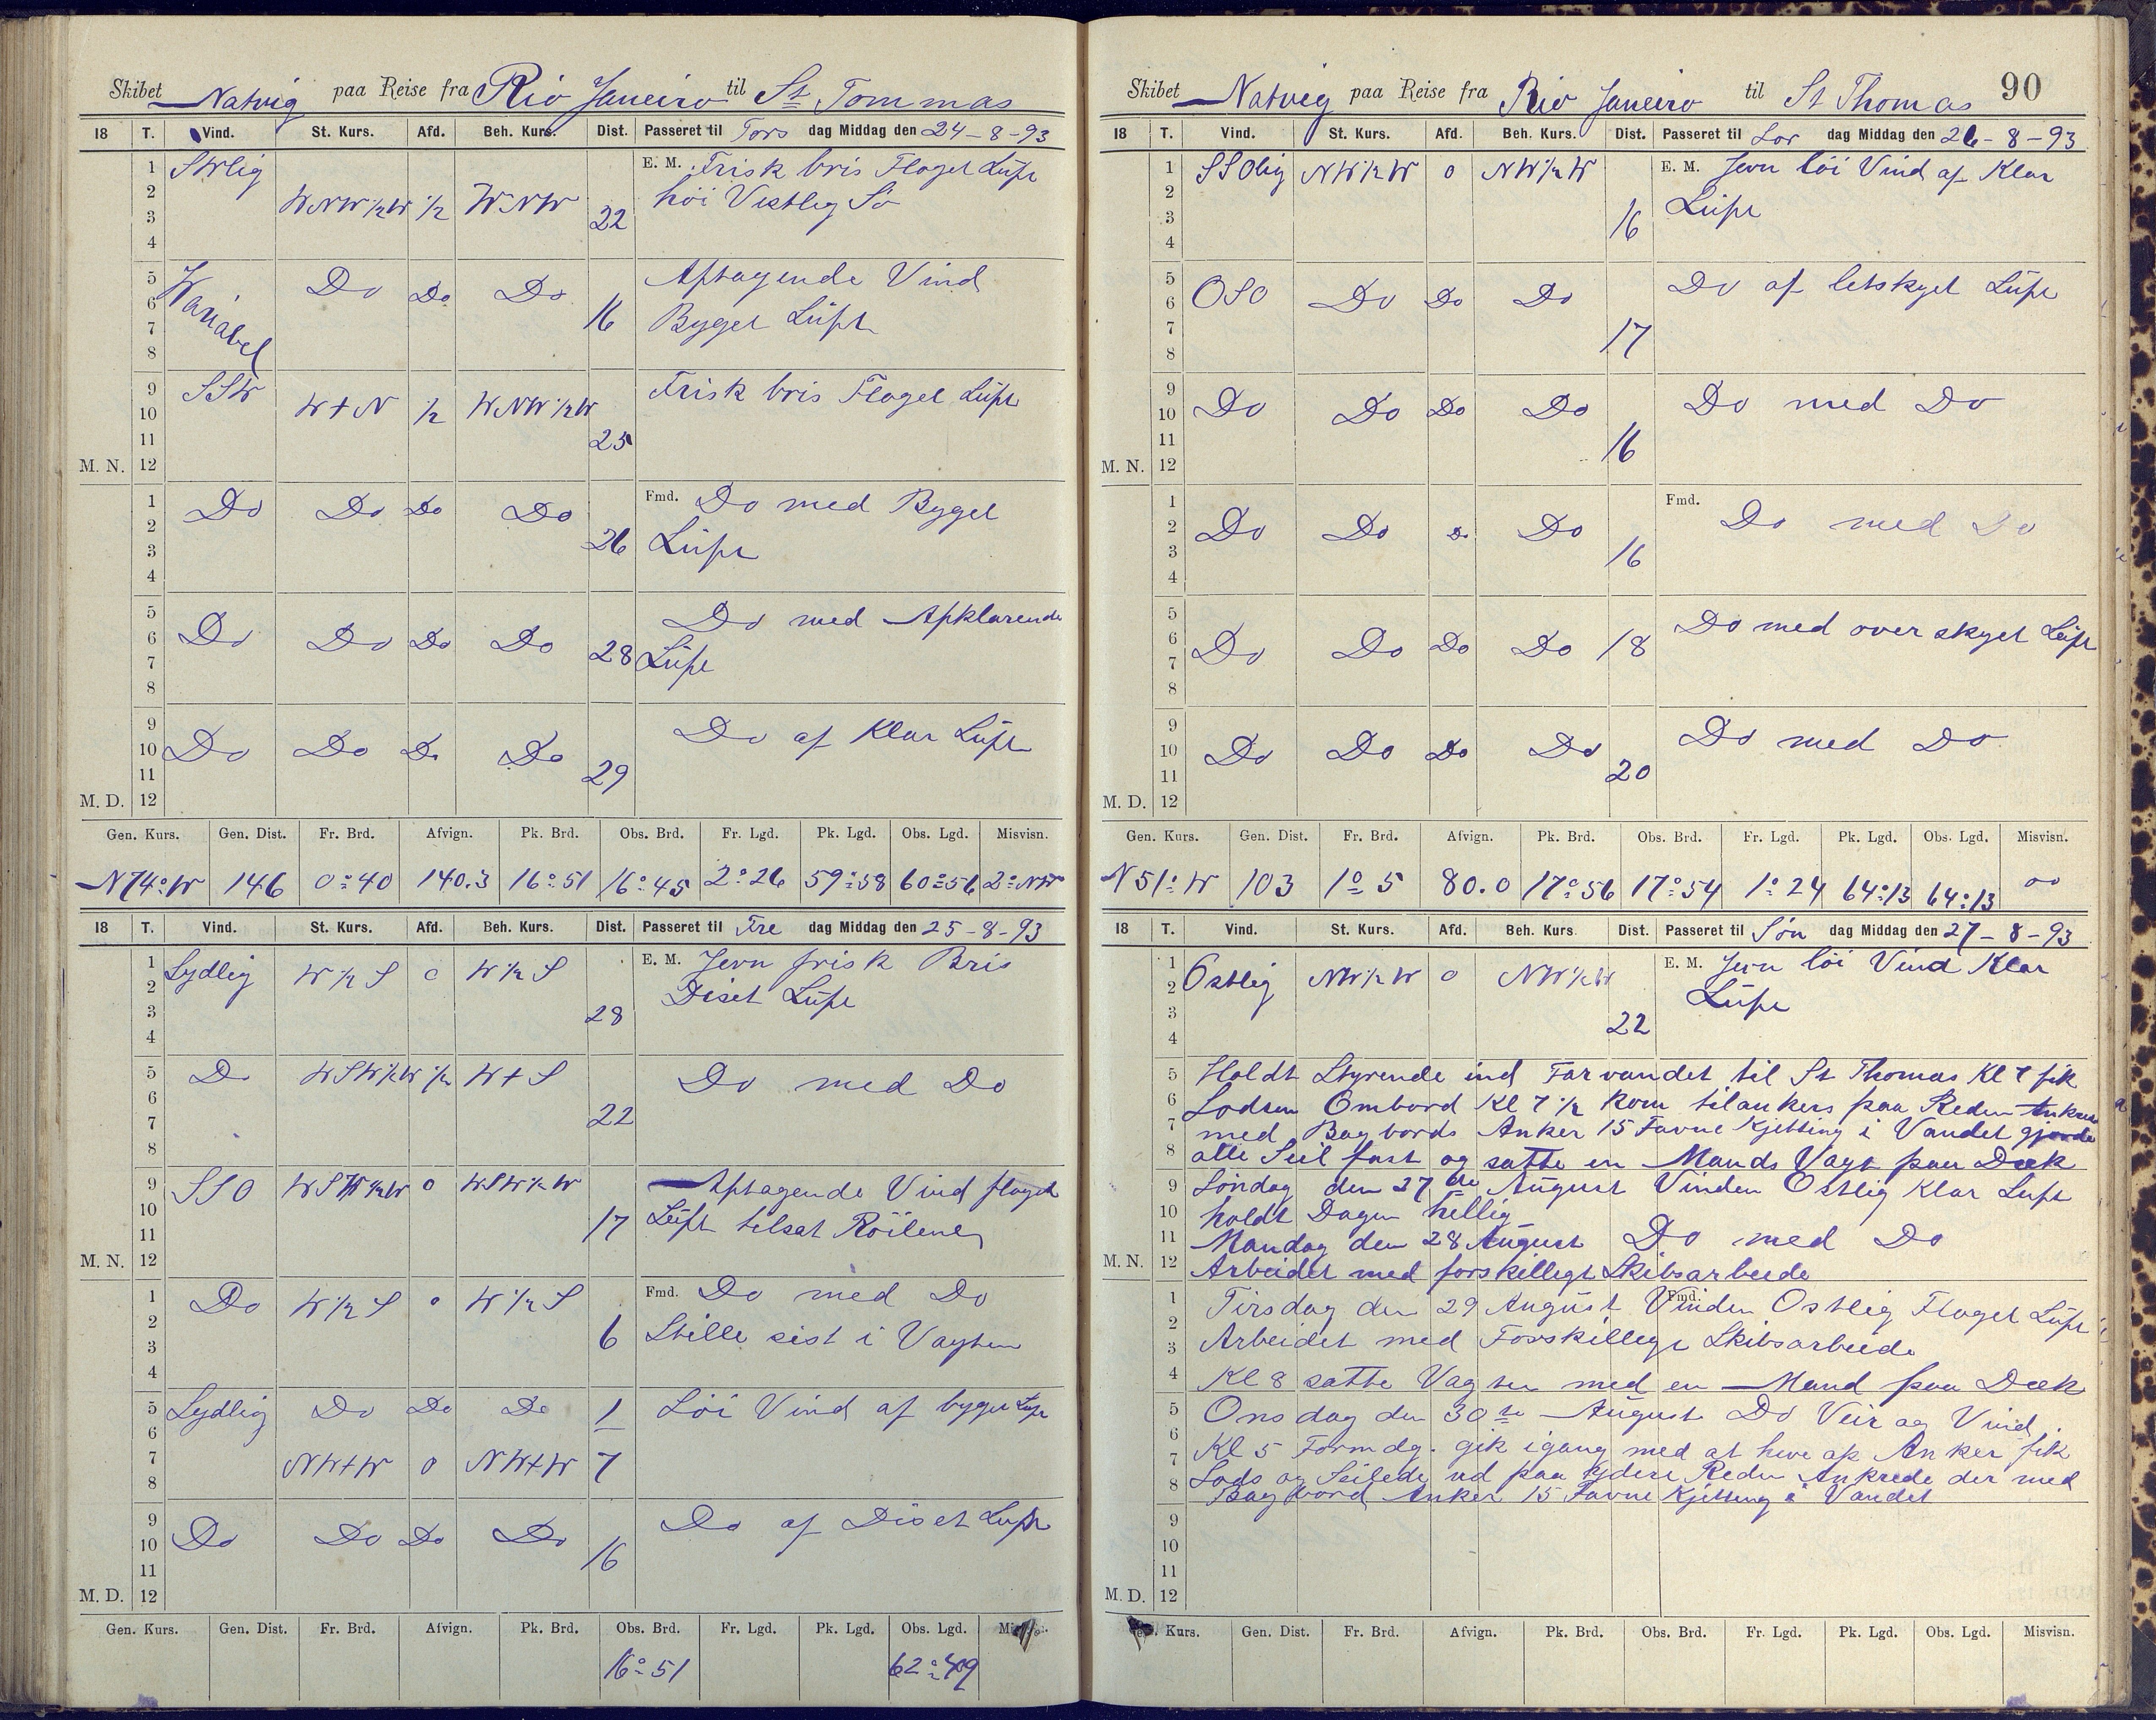 Skibet Natvig paa Reise fra Rio Janeiro til St Tommas
18 T. Vind. St. Kurs. Afd. Beh. Kurs. Dist. Passeret til Tors dag Middag den 24-8-93
1 SWlig E. M. Frisk bris Flaget Luft
2 WNW½W ½ WNW høi Vestlig Sø
3 22
4
5 Variabel Do Do Do Aftagende Vind
6 16 Byget Luft
7
8
9 SSW W+N ½ WNW½W Frisk bris Flaget Luft
10
11 25
M. N. 12
1 Do Do Do Do Fmd. Do med Byget
2 26 Luft
3
4
5 Do med Afklarende
6 Do Do Do Do 28 Luft
7
8
9 Do af Klar Luft
10 Do Do Do Do
11 29
M. D. 12
Gen. Kurs. Gen. Dist. Fr. Brd. Afvign. Pk. Brd. Obs. Brd. Fr. Lgd. Pk. Lgd. Obs. Lgd. Misvisn.
N74°W 146 0°40 140.3 16°51 16°45 2°26 59°58 60°56 2°NW
18 T. Vind. St. Kurs. Afd. Beh. Kurs. Dist. Passeret til Fre dag Middag den 25-8-93
1 Sydlig W½S 0 W½S E. M. Jevn frisk Bris
2 Diset Luft
3 28
4
5 Do WSW½W ½ W+S Do med Do
6
7 22
8
9 SSO WSW½W 0 WSW½W Aftagende Vind flaget
10 17 Luft tilsat Röilene
11
M. N. 12
1 Do W½S 0 W½S Fmd. Do med Do
2 6 Stille sist i Vagten
3
4
5 Sydlig Do Do Do 1 Löi Vind af byget Luft
6
7 NW+W 0 NW+W 7
8
9 Do af Diset Luft
10 Do Do Do Do 16
11
M. D. 12
Gen. Kurs. Gen. Dist. Fr. Brd. Afvign. Pk. Brd. Obs. Brd. Fr. Lgd. Pk. Lgd. Obs. Lgd.
16°51 62°49
Skibet Natvig paa Reise fra Rio Janeiro til St Thomas 90
18 T. Vind. St. Kurs. Afd. Beh. Kurs. Dist. Passeret til Lør dag Middag den 26-8-93
1 SSOlig NW½W 0 NW½W E. M. Jevn löi Vind af Klar
2 Luft
3 16
4
5 Do af letskyet Luft
6 OSO Do Do Do
7 17
8
9 Do med Do
10 Do Do Do Do
11 16
M. N. 12
1 Fmd. Do med Do
2 Do Do Do Do
3 16
4
5 Do med overskyet Luft
6 Do Do Do Do 18
7
8
9 Do med Do
10 Do Do Do Do
11 20
M. D. 12
Gen. Kurs. Gen. Dist. Fr. Brd. Afvign. Pk. Brd. Obs. Brd. Fr. Lgd. Pk. Lgd. Obs. Lgd. Misvisn.
N51°W 103 1°5 80.0 17°56 17°54 1°24 64°13 64°13 00
18 T. Vind. St. Kurs. Afd. Beh. Kurs Dist. Passeret til Søn dag Middag den 27-8-93
1 E. M. Jevn löi Vind Klar
2 Östlig NW½W 0 NW½W Luft
3 22
4
5 Holdt Styrende ind Farvandet til St Thomas Kl 7 fik
6 Lodsen Ombord Kl 7½ kom tilankers paa Reden Ankrede
7 med Bagbords Anker 15 Favne Kjetting i Vandet gjorde
8 alle Seil fast og satte en Mands Vagt paa Dæk
9 Söndag den 27de August Vinden Östlig Klar Luft
10 holdt Dagen hellig
11 Mandag den 28 August Do med Do
M. N. 12 Arbeidet med forskilligt Skibsarbeide
1 Tirsdag den 29 August Vinden Ostlig Flaget Luft
Fmd.
2
3 Arbeidet med Forskilligt Skibsarbeide
4 Kl 8 satte Vagten med en Mand paa Dæk
5 Onsdag den 30te August Do Veir og Vind
6
7 Kl 5 Formdg. gik igang med at hive op Anker fik
8 Lods og Seilede ud paa Ydere Reden Ankrede der med
Bagbord Anker 15 Favne Kjetting i Vandet
9
10
11
M. D. 12
Kurs. Gen. Dist. Fr. Brd. Afvign. Pk. Brd. Obs. Brd. Fr. Lgd. Pk. Lgd. Obs. Lgd. Misvisn.